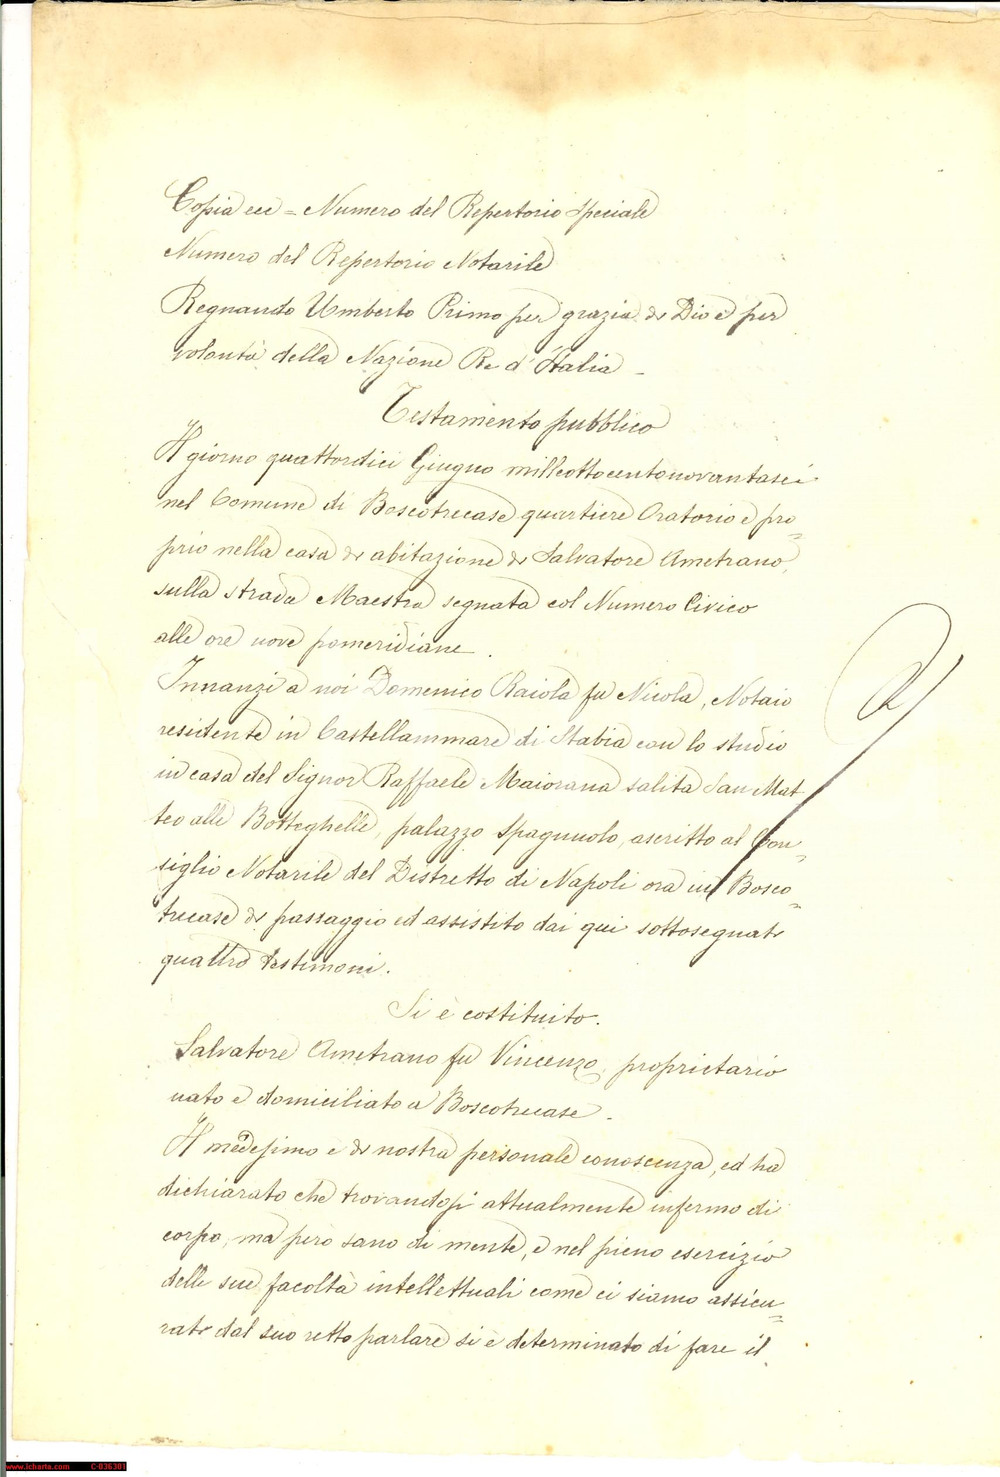 Copia ecc = Numero del Repertorio Speciale
Numero del Repertorio Notarile
Regnando Umberto Primo per grazia di Dio e per
volontà della Nazione Re d'Italia _
Testamento pubblico
Il giorno quattordici Giugno milleottocentonovantasei
nel Comune di Boscotrecase quartiere Oratorio e pro=
prio nella casa di abitazione di Salvatore Ametrano,
sulla strada Maestra segnata col Numero Civico
alle ore nove pomeridiane.
Innanzi a noi Domenico Raiola fu Nicola, Notaio
residente in Castellammare di Stabia con lo studio
in casa del Signor Raffaele Maiorana salita San Mat
teo alle Botteghelle, palazzo Spagnuolo, ascritto al Con=
siglio Notarile del Distretto di Napoli ora in Bosco=
trecase di passaggio ed assistito dai qui sottosegnati
quattro testimoni.
Si è costituito.
Salvatore Ametrano fu Vincenzo, proprietario
nato e domiciliato a Boscotrecase.
Il medesimo è di nostra personale conoscenza, ed ha
dichiarato che trovandosi attualmente infermo di
corpo, ma però sano di mente, e nel pieno esercizio
delle sue facoltà intellettuali come ci siamo assicu=
rati dal suo retto parlare si è determinato di fare il
www.icharta.com C-036301